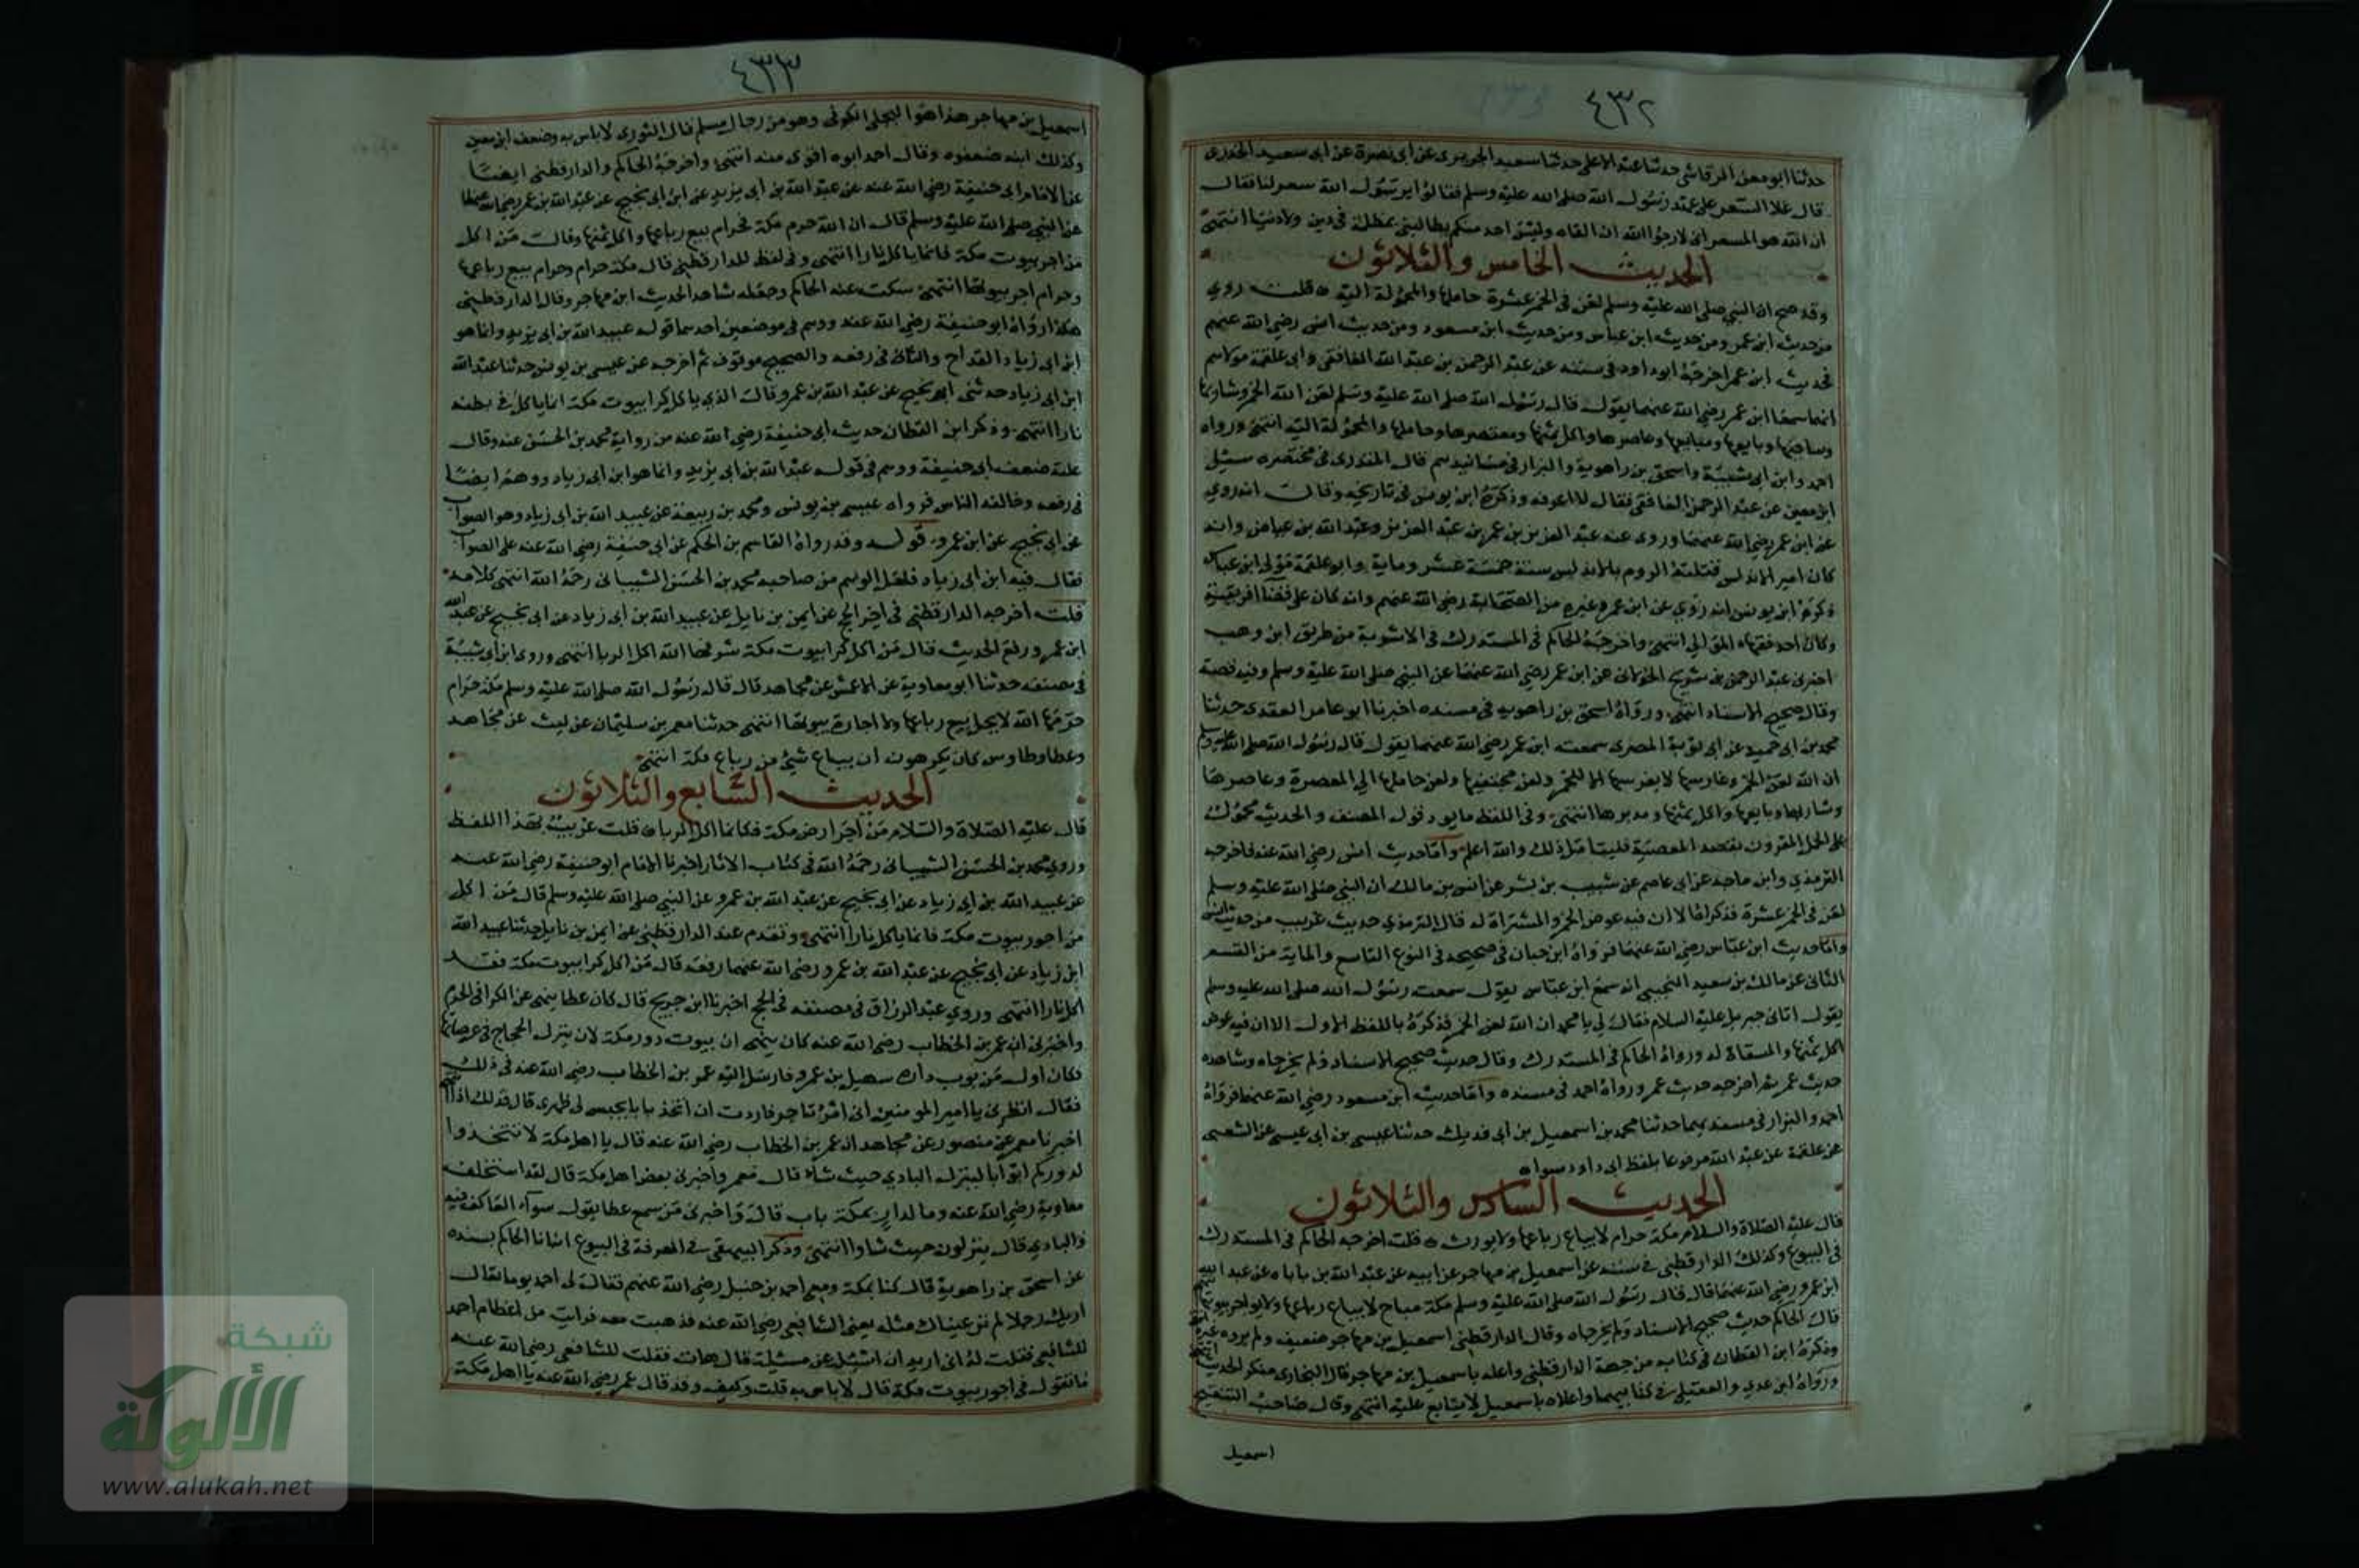 ٤٣٢
حدثنا ابو معن الرقاشي حدثنا عبد الاعلى حدثنا سعيد الجريري عن ابي نضرة عن ابي سعيد الخدري
قال غلا السعر على عهد رسول الله صلى الله عليه وسلم فقالوا يرسول الله سعر لنا فقال
ان الله هو المسعر اني لارجوا الله ان القاه وليس احد منكم يطالبني بمظلمة في دين ولا دنيا انتهى
الحديث الخامس والثلاثون
وقد صح ان النبي صلى الله عليه وسلم لعن في الخمر عشرة حاملها والمحمولة اليه قلت روي
من حديث ابن عمر ومن حديث ابن عباس ومن حديث ابن مسعود ومن حديث انس رضي الله عنهم
فحديث ابن عمر اخرجه ابو داود في سننه عن عبد الرحمن بن عبد الله الغافقي وابي علقمة مولاهم
انهما سمعا ابن عمر رضي الله عنهما يقول قال رسول الله صلى الله عليه وسلم لعن الله الخمر وشاربها
وساقيها وبايعها ومبتاعها وعاصرها واكل ثمنها ومعتصرها وحاملها والمحمولة اليه انتهى ورواه
احمد وابن ابي شيبة واسحق بن راهوية والبزار في مسانيدهم قال المنذري في مختصره سئل
ابن معين عن عبد الرحمن الغافقي فقال لا اعرفه وذكره ابن يونس في تاريخه وقال انه روي
عن ابن عمر رضي الله عنهما وروى عنه عبد العزيز بن عمر بن عبد العزيز وعبد الله بن عياض وانه
كان امير الاندلس فقتلته الروم بالاندلس سنة خمسة عشر وماية وابو علقمة مولى ابن عباس
ذكره ابن يونس انه روي عن ابن عمر وغيره من الصحابة رضي الله عنهم وانه كان على قضا افريقية
وكان احد فقهاء الموالي انتهى واخرجه الحاكم في المستدرك في الاشربة من طريق ابن وهب
اخبرني عبد الرحمن بن شريح الخولاني عن ابن عمر رضي الله عنهما عن النبي صلى الله عليه وسلم وفيه قصة
وقال صحيح الاسناد انتهى ورواه اسحق بن راهويه في مسنده اخبرنا ابو عامر العقدي حدثنا
محمد بن ابي حميد عن ابي توبة المصري سمعت ابن عمر رضي الله عنهما يقول قال رسول الله صلى الله عليه وسلم
ان الله لعن الخمر وغارسها لا يغرسها الا للخمر ولعن مجتنيها ولعن حاملها الي المعصرة وعاصرها
وشاربها وبايعها واكل ثمنها ومديرها انتهى وفي اللفظ ما يرد قول المصنف والحديث محمول
على الحمل المقرون بقصد المعصية فليتامل ذلك والله اعلم واما حديث انس رضي الله عنه فاخرجه
الترمذي وابن ماجه عن ابي عاصم عن شبيب بن بشر عن انس بن مالك ان النبي صلى الله عليه وسلم
لعن في الخمر عشرة فذكرها الا ان فيه عوض الخمر والمشتراة له قال الترمذي حديث غريب من حديث انس
واما حديث ابن عباس رضي الله عنهما فرواه ابن حبان في صحيحه في النوع التاسع والماية من القسم
الثاني عن مالك بن سعيد التجيبي انه سمع ابن عباس يقول سمعت رسول الله صلى الله عليه وسلم
يقول اتاني جبريل عليه السلام فقال لي يا محمد ان الله لعن الخمر فذكره باللفظ الاول الا ان فيه عوض
اكل ثمنها والمسقاة له ورواه الحاكم في المستدرك وقال حديث صحيح الاسناد ولم يخرجاه وشاهده
حديث عمر ثم اخرجه حديث عمر ورواه احمد في مسنده واما حديث ابن مسعود رضي الله عنهما فرواه
احمد والبزار في مسنديهما حدثنا محمد بن اسمعيل بن ابي فديك حدثنا عيسى بن ابي عيسى عن الشعبي
عن علقمة عن عبد الله مرفوعا بلفظ ابي داود سواه
الحديث السادس والثلاثون
قال عليه الصلاة والسلام مكة حرام لا يباع رباعها ولا يورث قلت اخرجه الحاكم في المستدرك
في البيوع وكذلك الدارقطني في سننه عن اسمعيل بن مهاجر عن ابيه عن عبد الله بن باباه عن عبد الله
ابن عمرو رضي الله عنهما قال قال رسول الله صلى الله عليه وسلم مكة مباح لا يباع رباعها ولا يواجر بيوتها انتهى
قال الحاكم حديث صحيح الاسناد ولم يخرجاه وقال الدارقطني اسمعيل بن مهاجر ضعيف ولم يروه غيره انتهى
وذكره ابن القطان في كتابه من جهة الدارقطني واعله باسمعيل بن مهاجر قال البخاري منكر الحديث انتهى
ورواه ابن عدي والعقيلي في كتابيهما واعلاه باسمعيل لا يتابع عليه انتهى وقال صاحب التنقيح
اسمعيل
٤٣٣
اسمعيل بن مهاجر هذا هو البجلي الكوفي وهو من رجال مسلم قال الثوري لا باس به وضعفه ابن معين
وكذلك ابنه ضعفوه وقال احمد ابوه اقوى منه انتهى واخرجه الحاكم والدارقطني ايضا
عن الامام ابي حنيفة رضي الله عنه عن عبد الله بن ابي يزيد عن ابن ابي نجيح عن عبد الله بن عمرو رضي الله عنهما
عن النبي صلى الله عليه وسلم قال ان الله حرم مكة فحرام بيع رباعها واكل ثمنها وقال من اكل
من اجر بيوت مكة فانما ياكل نارا انتهى وفي لفظ للدارقطني قال مكة حرام وحرام بيع رباعها
وحرام اجر بيوتها انتهى سكت عنه الحاكم وجعله شاهد الحديث ابن مهاجر وقال الدارقطني
هكذا رواه ابو حنيفة رضي الله عنه ووهم في موضعين احدهما قوله عبيد الله بن ابي يزيد وانما هو
ابن ابي زياد القداح والثاني في رفعه والصحيح موقوف ثم اخرجه عن عيسى بن يونس حدثنا عبد الله
ابن ابي زياد حدثني ابو نجيح عن عبد الله بن عمرو قال الذي ياكل كرا بيوت مكة انما ياكل في بطنه
نارا انتهى وذكر ابن القطان حديث ابي حنيفة رضي الله عنه من رواية محمد بن الحسن عنه وقال
علته ضعف ابي حنيفة ووهم في قوله عبد الله بن ابي يزيد وانما هو ابن ابي زياد ووهم ايضا
في رفعه وخالفه الناس فرواه عيسى بن يونس ومحمد بن ربيعة عن عبيد الله بن ابي زياد وهو الصواب
عن ابي نجيح عن ابن عمرو قوله وقد رواه القاسم بن الحكم عن ابي حنيفة رضي الله عنه على الصواب
فقال فيه ابن ابي زياد فلعل الوهم من صاحبه محمد بن الحسن الشيباني رحمه الله انتهى كلامه
قلت اخرجه الدارقطني في اخر الحج عن ايمن بن نايل عن عبيد الله بن ابي زياد عن ابي نجيح عن عبد الله
ابن عمرو رفع الحديث قال من اكل كرا بيوت مكة اكل الربا انتهى وروى ابن ابي شيبة
في مصنفه حدثنا ابو معاوية عن الاعمش عن مجاهد قال قال رسول الله صلى الله عليه وسلم مكة حرام
حرمها الله لا يحل بيع رباعها ولا اجارة بيوتها انتهى حدثنا معمر بن سليمان عن ليث عن مجاهد
وعطا وطاوس كان يكرهون ان يباع شيئ من رباع مكة انتهى
الحديث السابع والثلاثون
قال عليه الصلاة والسلام من اجر ارض مكة فكانما اكل الربا قلت غريب بهذا اللفظ
وروي محمد بن الحسن الشيباني رحمه الله في كتاب الاثار اخبرنا الامام ابو حنيفة رضي الله عنه
عن عبيد الله بن ابي زياد عن ابي نجيح عن عبد الله بن عمرو عن النبي صلى الله عليه وسلم قال من اكل
من اجور بيوت مكة فانما ياكل نارا انتهى وتقدم عند الدارقطني عن ايمن بن نايل حدثنا عبيد الله
ابن زياد عن ابي نجيح عن عبد الله بن عمرو رضي الله عنهما رفعه قال من اكل كرا بيوت مكة فقد
اكل نارا انتهى وروي عبد الرزاق في مصنفه في الحج اخبرنا ابن جريج قال كان عطا ينهى عن الكرا في الحرم
واخبرني ان عمر بن الخطاب رضي الله عنه كان ينهى ان بيوت دور مكة لان ينزل الحجاج في عرصاتها
فكان اول من بوب داره سهيل بن عمرو فارسل اليه عمر بن الخطاب رضي الله عنه في ذلك
فقال انظرني يا امير المومنين اني امرؤ تاجر فاردت ان اتخذ بابا يحبس لي ظهري قال فذلك اذا انتهى
اخبرنا معمر عن منصور عن مجاهد ان عمر بن الخطاب رضي الله عنه قال يا اهل مكة لا تتخذوا
لدوركم ابوابا لينزل البادي حيث شاء قال معمر واخبرني بعض اهل مكة قال لقد استخلف
معاوية رضي الله عنه وما لدار بمكة باب قال واخبرني من سمع عطا يقول سواء العاكف فيه
والبادي قال ينزلون حيث شاوا انتهى وذكر البيهقي في المعرفة في البيوع انبانا الحاكم بسنده
عن اسحق بن راهوية قال كنا بمكة ومعي احمد بن حنبل رضي الله عنهم فقال لي احمد يوما تعال
اريك رجلا لم تر عيناك مثله يعني الشافعي رضي الله عنه فذهبت معه فرايت من اعظام احمد
للشافعي فقلت له اني اريد ان اسئله عن مسئلة قال هات فقلت للشافعي رضي الله عنه
ما تقول في اجور بيوت مكة قال لا باس به قلت وكيف وقد قال عمر رضي الله عنه يا اهل مكة
شبكة
الألوكة
www.alukah.net